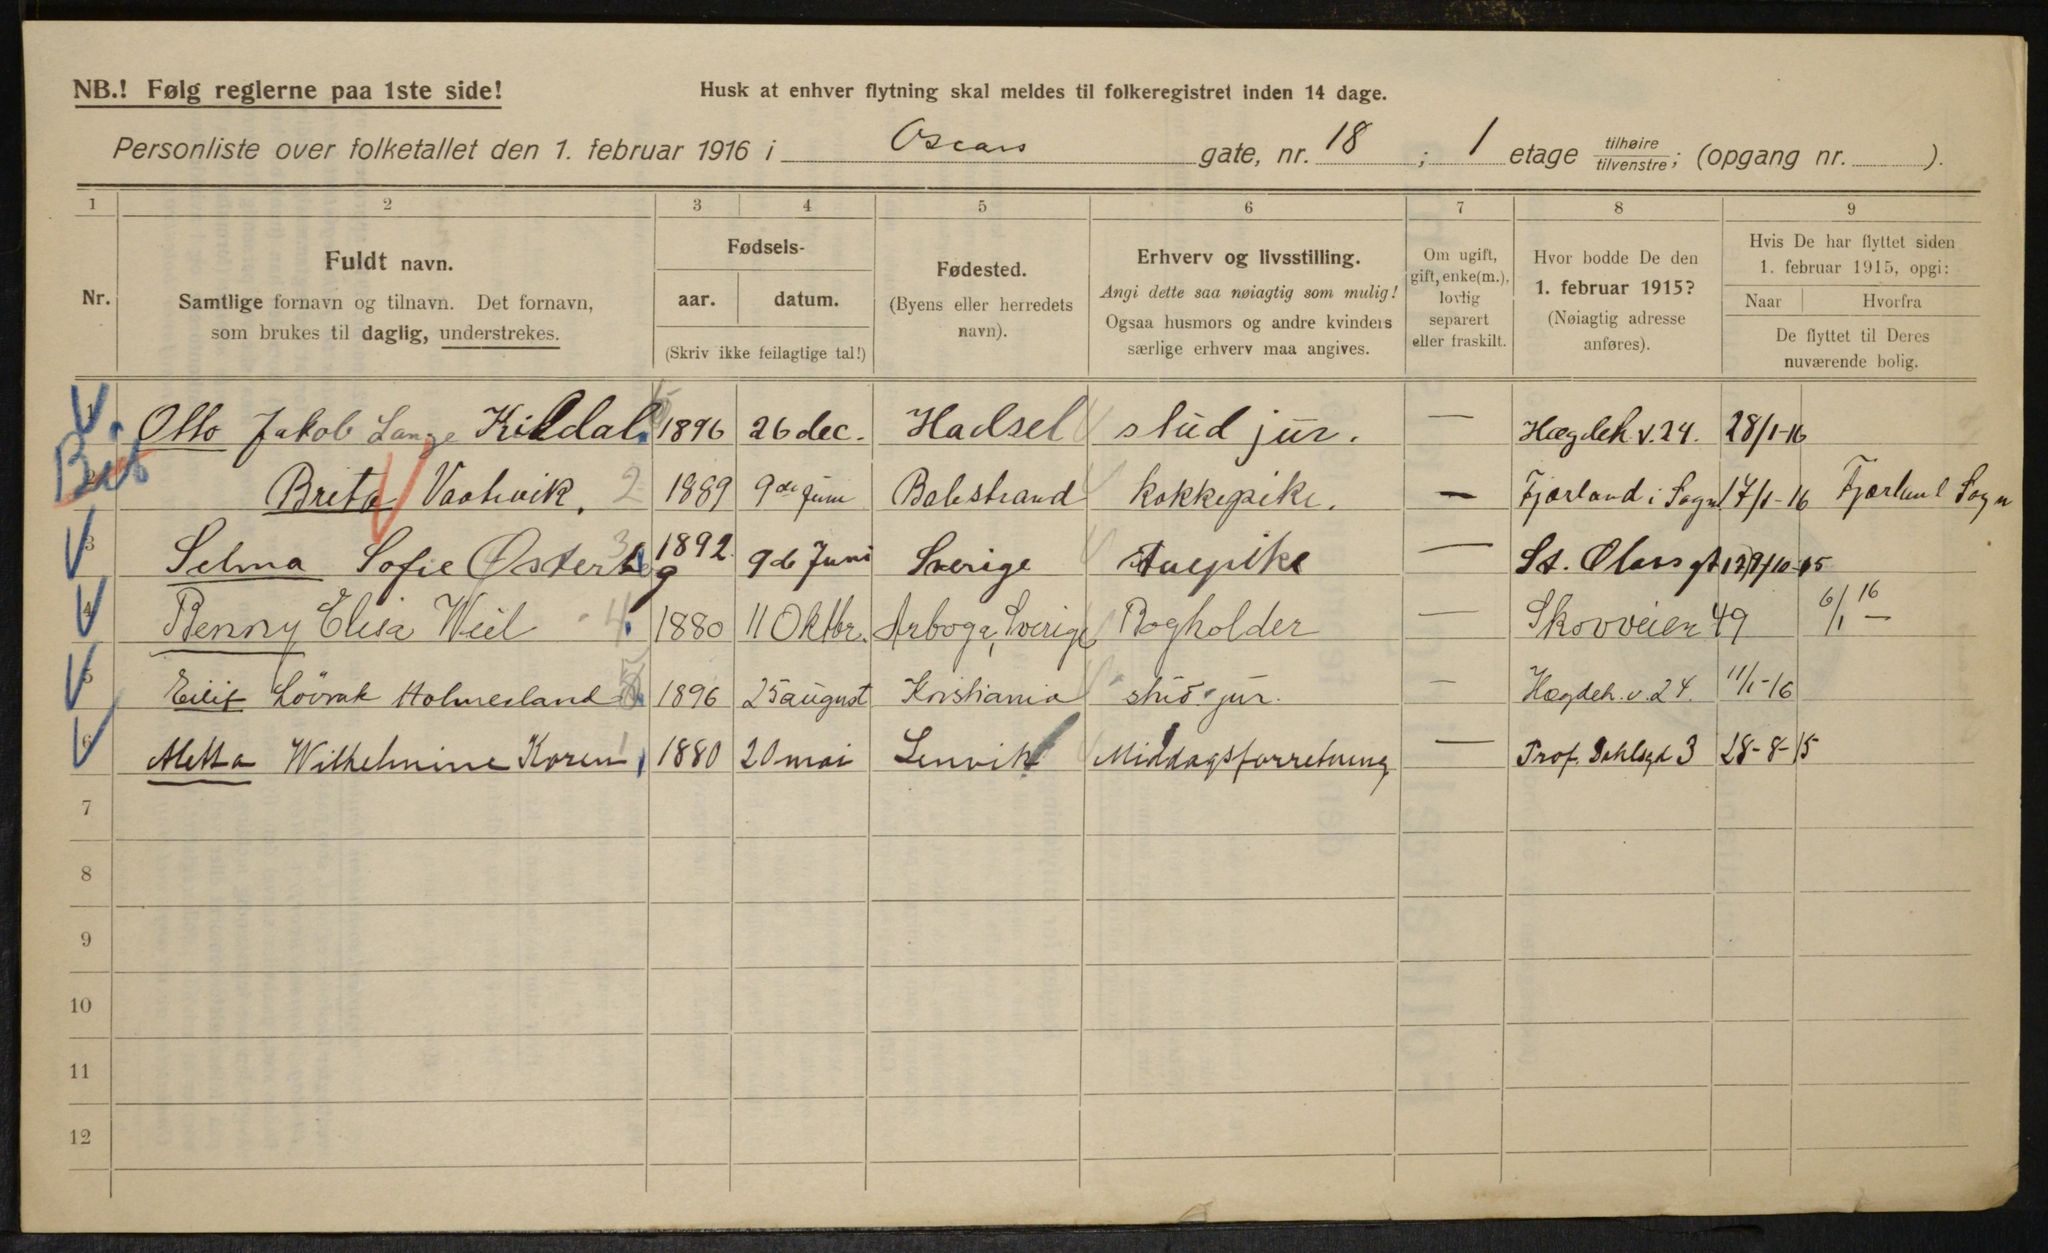 NB.! Følg reglerne paa 1ste side!
Husk at enhver flytning skal meldes til folkeregistret inden 14 dage.
Personliste over folketallet den 1. februar 1916 i Oscars gate, nr. 18 ; 1 etage tilhøire tilvenstre; (opgang nr. ).
1 2 3 4 5 6 7 8 9
Nr.
Fuldt navn.
Samtlige fornavn og tilnavn. Det fornavn,
som brukes til daglig, understrekes.
Fødsels-
aar. datum.
(Skriv ikke feilagtige tal!)
Fødested.
(Byens eller herredets
navn).
Erhverv og livsstilling.
Angi dette saa nøiagtig som mulig!
Ogsaa husmors og andre kvinders
særlige erhverv maa angives.
Om ugift,
gift, enke(m.),
lovlig
separert
eller fraskilt.
Hvor bodde De den
1. februar 1915?
(Nøiagtig adresse
anføres).
Hvis De har flyttet siden
1. februar 1915, opgi:
Naar Hvorfra
De flyttet til Deres
nuværende bolig.
1 Otto Jakob Lange Kildal. 1896 26 dec. Hadsel stud jur. — Hægdeh. v. 24. 28/1-16
2 Brita 2 1889 9de Juni Balestrand kokkepike. — Fjærland i Sogn 17/1-16 Fjærland Sogn
3 Selma Sofie Østerberg 3 1892 9de Juni Sverige Stuepike — St. Olavsgt
4 Benny Elisa Weil 4. 1880 11 Oktbr. Arboga, Sverige Bogholder — Skovveien 49 6/1 16 —
5 Eilif Lövrak Holmesland 1896 25 august Kristiania stud. jur. — Hægdeh. v. 24. 11/1-16
6 Aletta Wilhelmine Koren 1 1880 20 mai Lenvik Middagsforretning — Prof. Dahlsgd 3 28-8-15
7
8
9
10
11
12